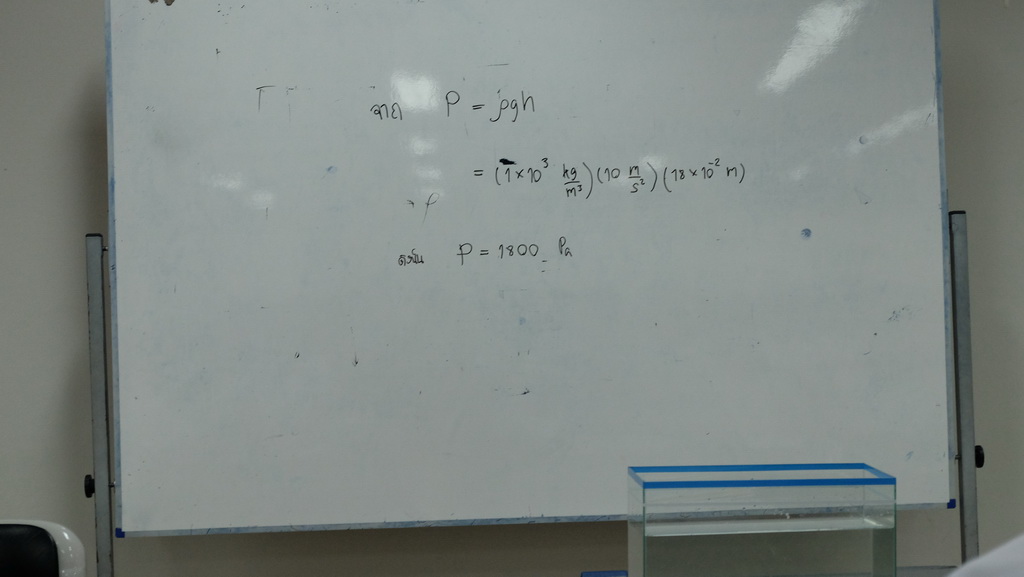 จาก P = ρgh
= (1×10³ kg/m³)(10 m/s²)(18×10⁻² m)
ดังนั้น P = 1800 Pa